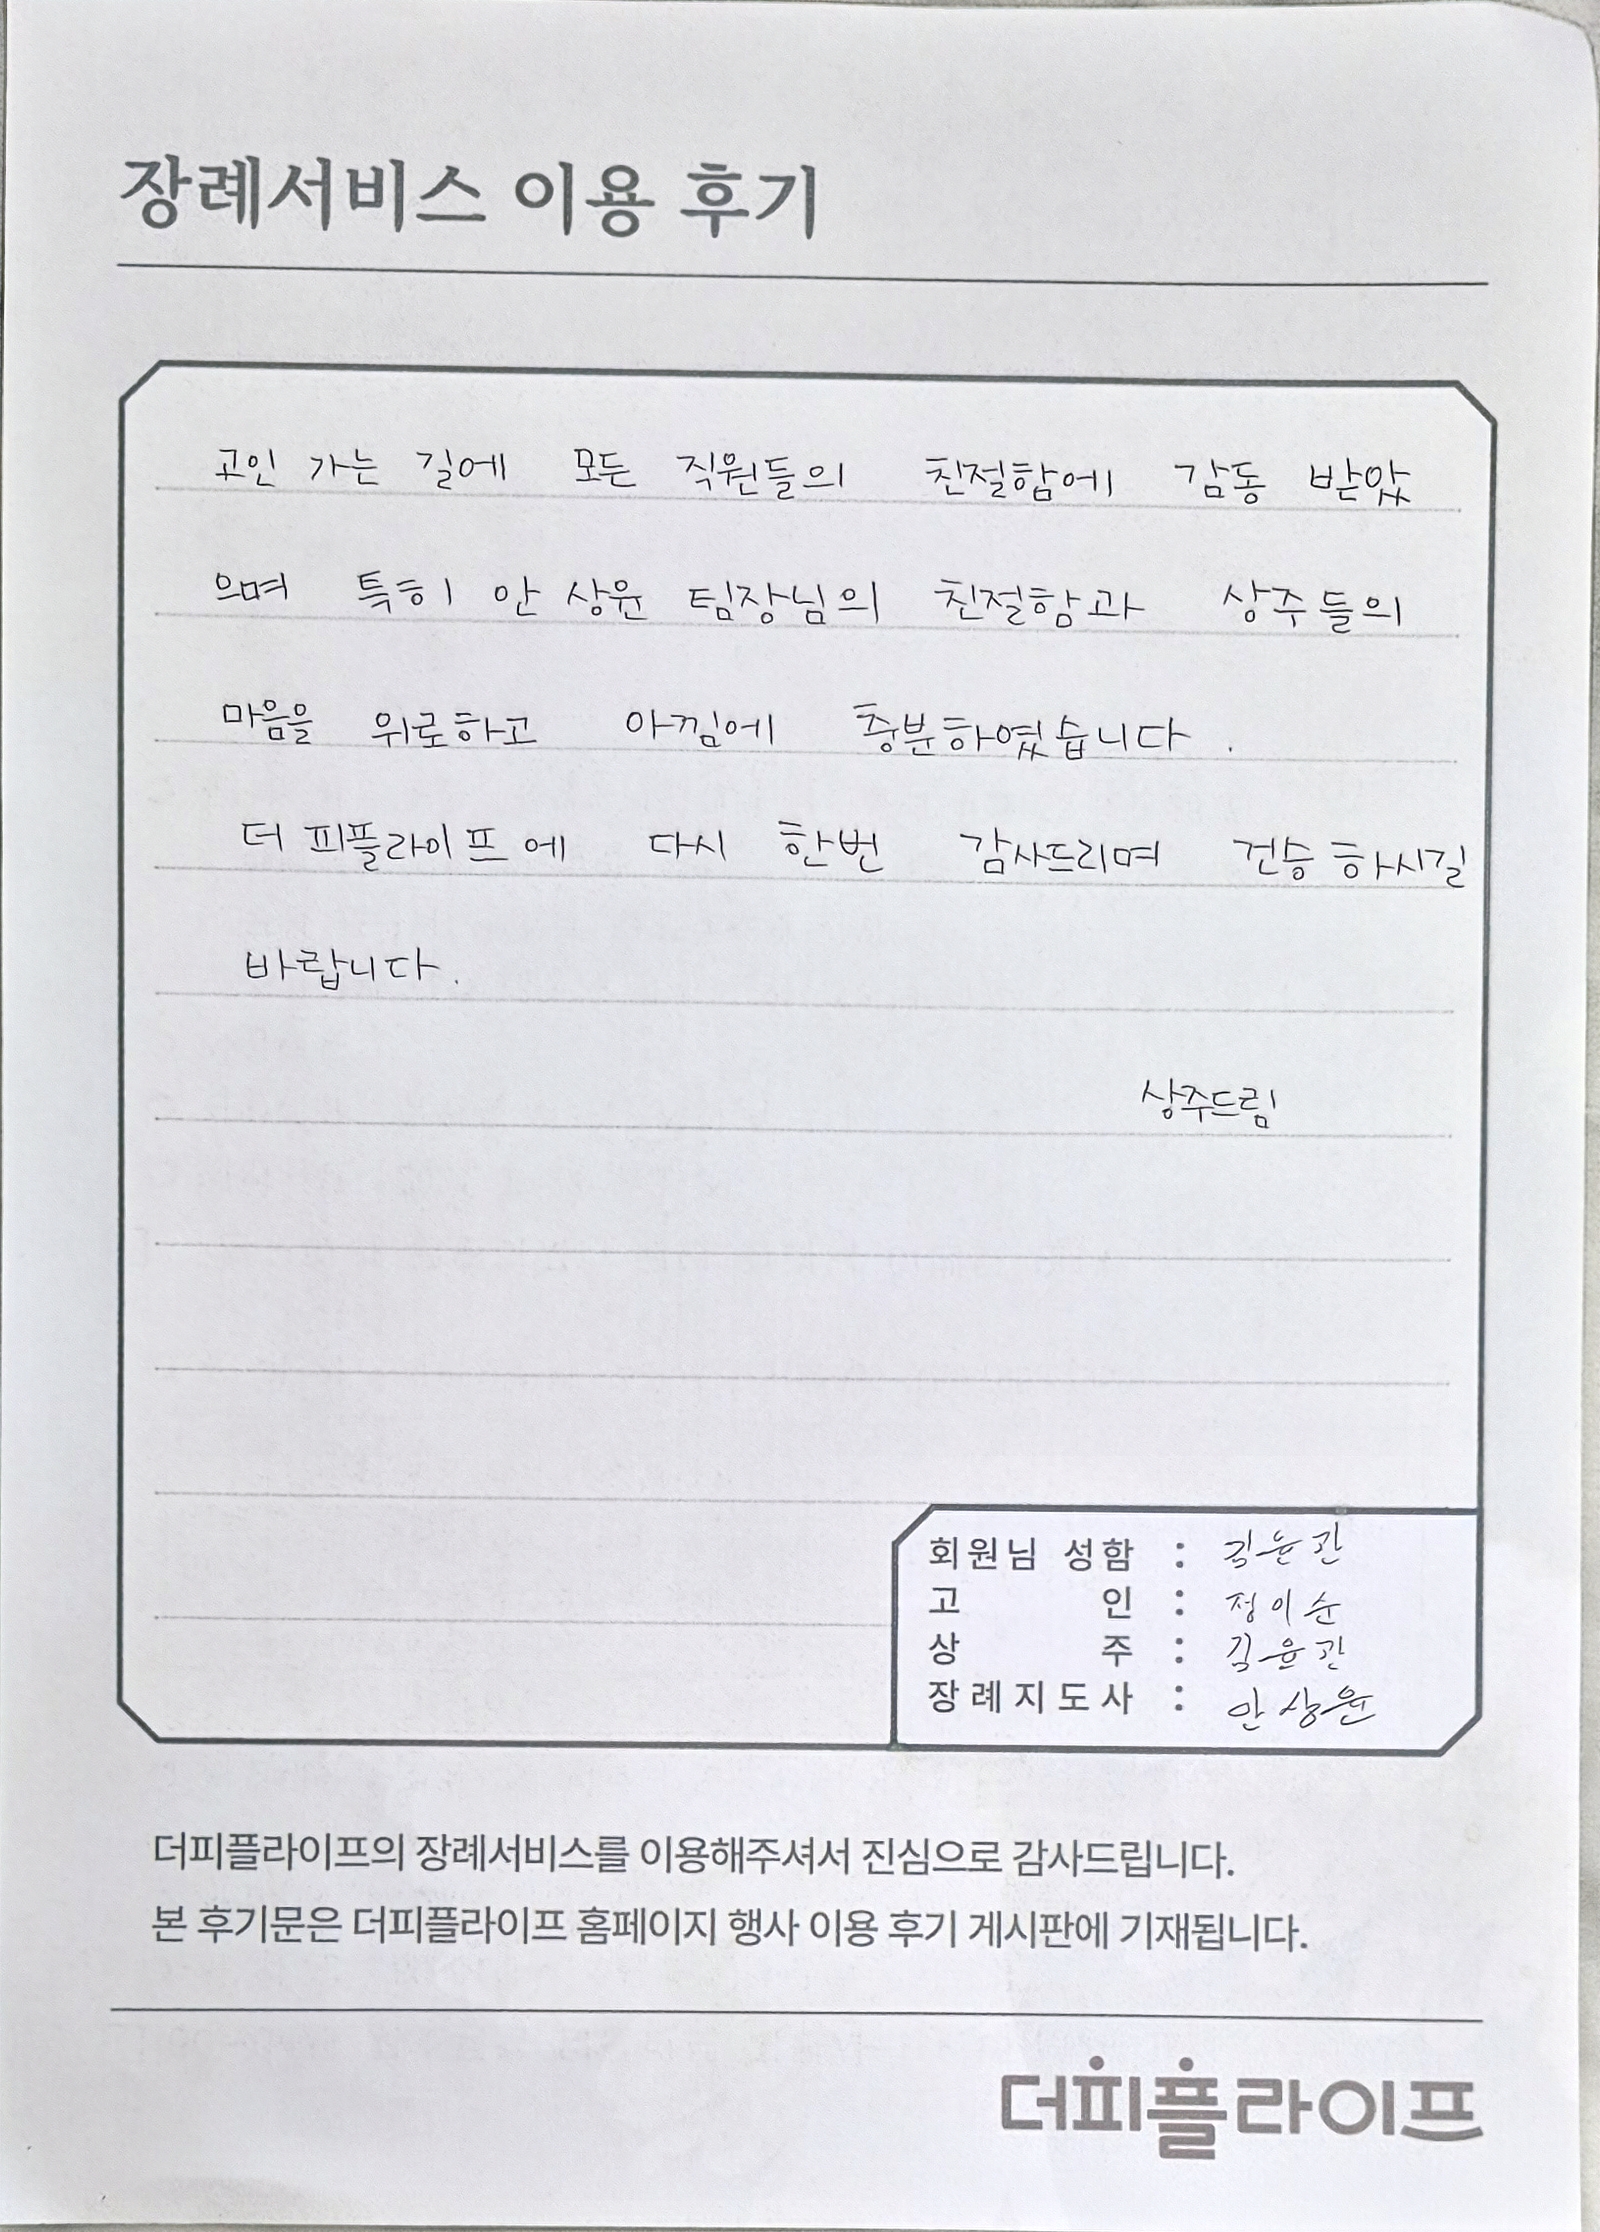 장례서비스 이용 후기
고인 가는 길에 모든 직원들의 친절함에 감동 받았
으며 특히 안상윤 팀장님의 친절함과 상주들의
마음을 위로하고 아낌에 충분하였습니다.
더피플라이프에 다시 한번 감사드리며 건승하시길
바랍니다.
상주드림
회원님 성함 : 김윤관
고 인 : 정이순
상 주 : 김윤관
장례지도사 : 안상윤
더피플라이프의 장례서비스를 이용해주셔서 진심으로 감사드립니다.
본 후기문은 더피플라이프 홈페이지 행사 이용 후기 게시판에 기재됩니다.
더피플라이프